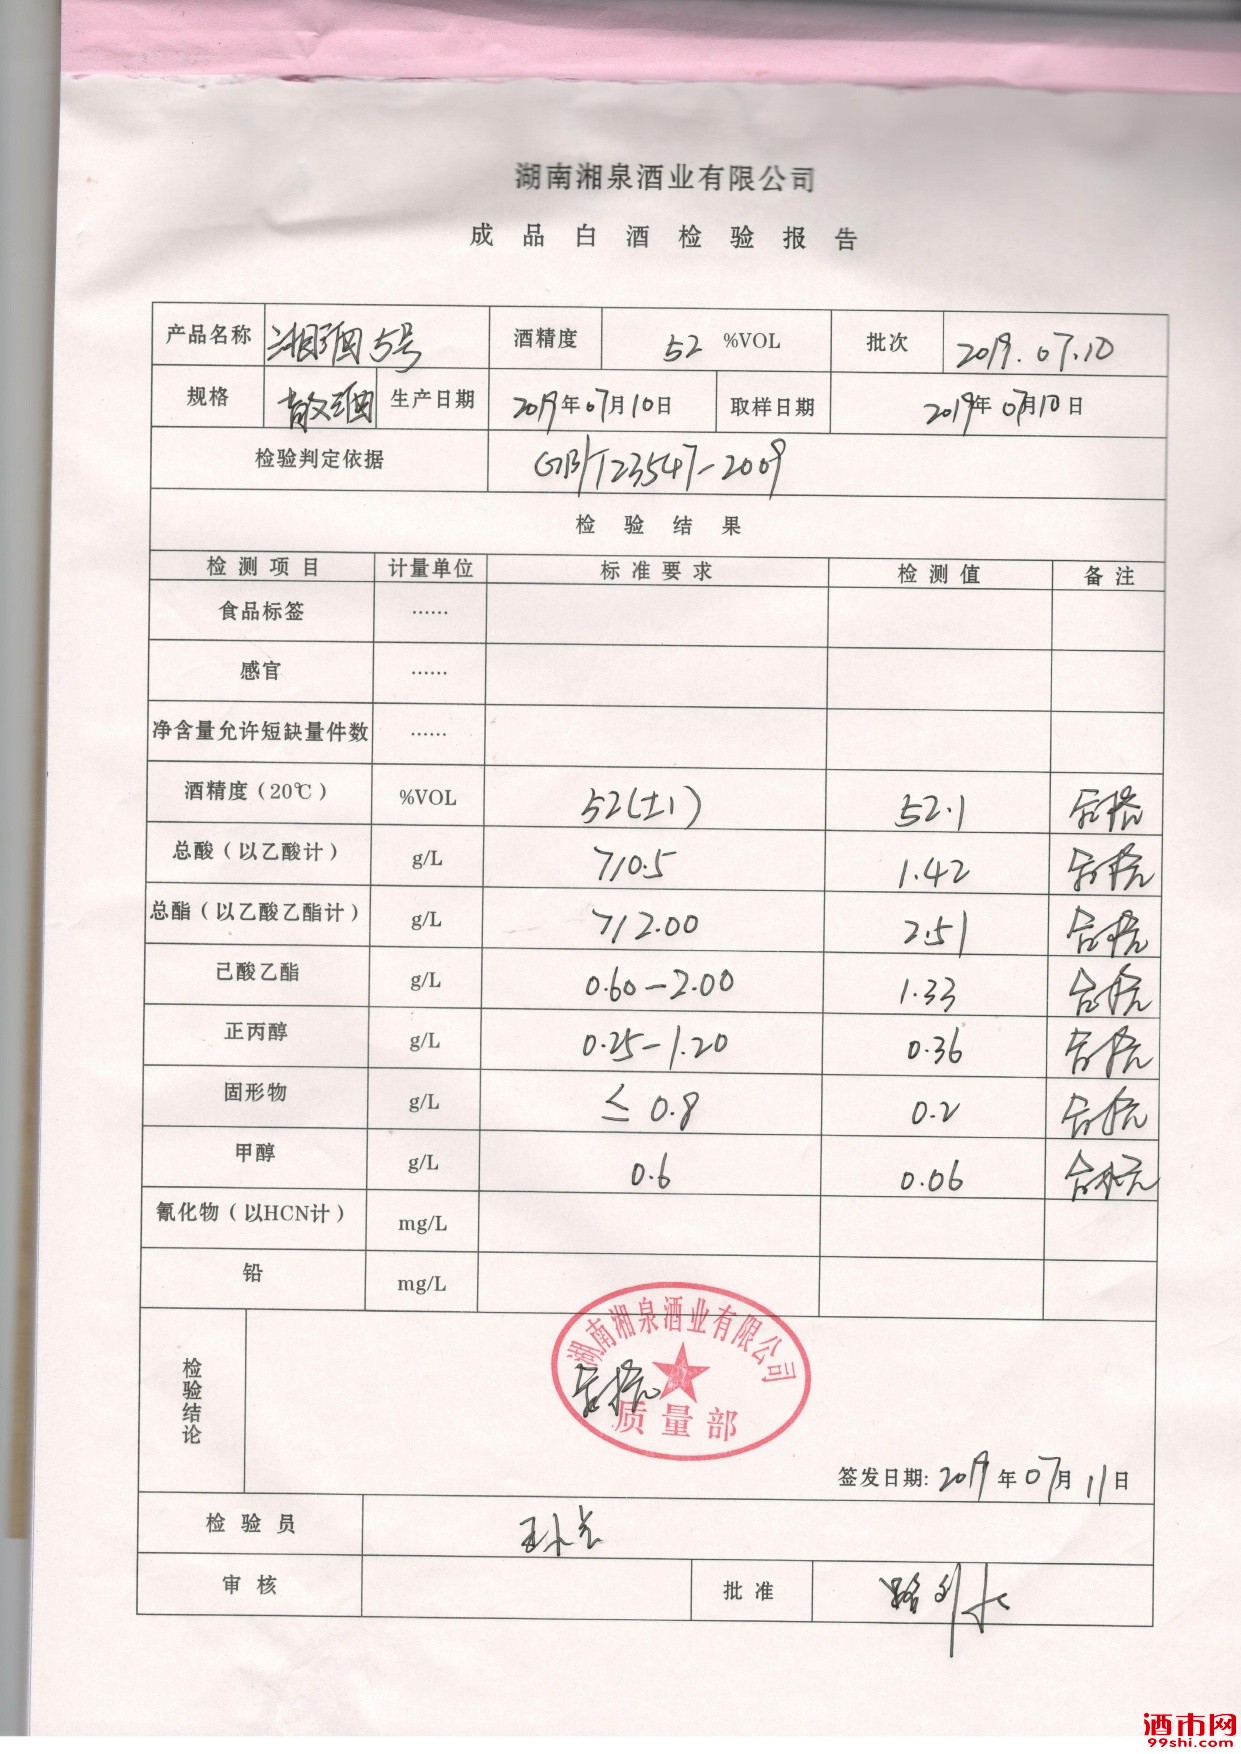 湖南湘泉酒业有限公司
成品白酒检验报告
产品名称 湘酒5号 酒精度 52 %VOL 批次 2019.07.10
规格 散酒 生产日期 2019年07月10日 取样日期 2019年07月10日
检验判定依据 GB/T23547-2009
检验结果
检测项目 计量单位 标准要求 检测值 备注
食品标签 ……
感官 ……
净含量允许短缺量件数 ……
酒精度(20℃) %VOL 52(±1) 52.1 合格
总酸(以乙酸计) g/L 7/0.5 1.42 合格
总酯(以乙酸乙酯计) g/L 7/2.00 2.51 合格
己酸乙酯 g/L 0.60-2.00 1.33 合格
正丙醇 g/L 0.25-1.20 0.36 合格
固形物 g/L ≤0.8 0.2 合格
甲醇 g/L 0.6 0.06 合格
氰化物(以HCN计) mg/L
铅 mg/L
检验结论 合格
湖南湘泉酒业有限公司
质量部
签发日期: 2019年07月11日
检验员
审核 批准
酒市网
99shi.com